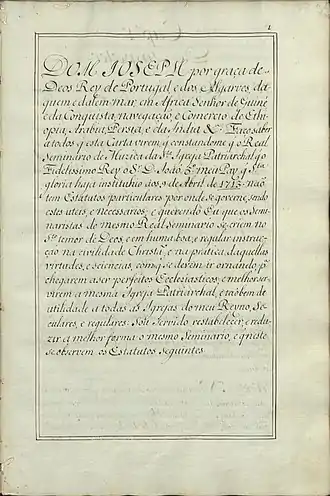 DOM IOSEPH por graça de
Deos Rey de Portugal, e dos Algarves, da
quem e dalem mar, em Africa Senhor de Guiné
e da Conquista, navegação, e Comercio de Ethi
opia, Arabia, Persia, e da India &. Faço saber
a todos q esta Carta virem, q constandome q o Real
Seminario de Musica da Sta. Igreja Patriarchal, q o
Fidelissimo Rey o Sr. D. João 5º meu Pay, q sta
gloria haja instituhio aos 9 de Abril de 1713 não
tem Estatutos particulares por onde se governe, sendo
estes uteis, e necessarios, e querendo Eu que os Semi
naristas do mesmo Real Seminario se criem no
Sto. temor de Deos, e em huma boa, e regular instruc
ção na civilidade Christã, e na pratica daquellas
virtudes, e sciencias, com q se devem ir ornando, pa.
chegarem a ser perfeitos Ecclesiasticos, e melhor ser
virem a mesma Igreja Patriarchal, e taõbem de
utilidade a todas as Igrejas do meu Reyno, Se
culares, e regulares: Sou Servido restabelecer, e redu
zir a melhor forma o mesmo Seminario, e q neste
se observem os Estatutos seguintes